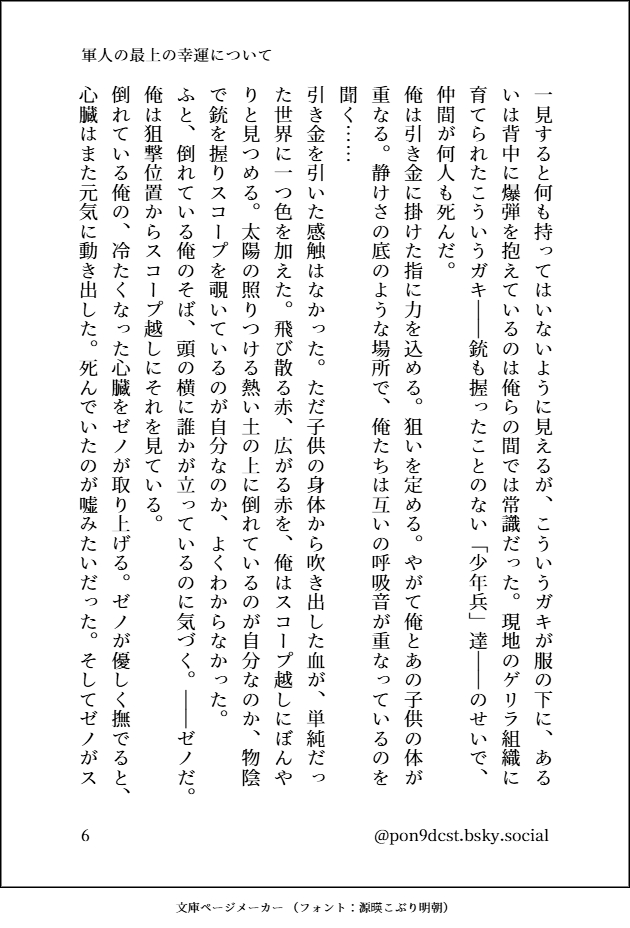 軍人の最上の幸運について
一見すると何も持ってはいないように見えるが、こういうガキが服の下に、ある
いは背中に爆弾を抱えているのは俺らの間では常識だった。現地のゲリラ組織に
育てられたこういうガキ――銃も握ったことのない「少年兵」達――のせいで、
仲間が何人も死んだ。
俺は引き金に掛けた指に力を込める。狙いを定める。やがて俺とあの子供の体が
重なる。静けさの底のような場所で、俺たちは互いの呼吸音が重なっているのを
聞く……
引き金を引いた感触はなかった。ただ子供の身体から吹き出した血が、単純だっ
た世界に一つ色を加えた。飛び散る赤、広がる赤を、俺はスコープ越しにぼんや
りと見つめる。太陽の照りつける熱い土の上に倒れているのが自分なのか、物陰
で銃を握りスコープを覗いているのが自分なのか、よくわからなかった。
ふと、倒れている俺のそば、頭の横に誰かが立っているのに気づく。――ゼノだ。
俺は狙撃位置からスコープ越しにそれを見ている。
倒れている俺の、冷たくなった心臓をゼノが取り上げる。ゼノが優しく撫でると、
心臓はまた元気に動き出した。死んでいたのが嘘みたいだった。そしてゼノがス
6
@pon9dcst.bsky.social
文庫ページメーカー（フォント：源暎こぶり明朝）